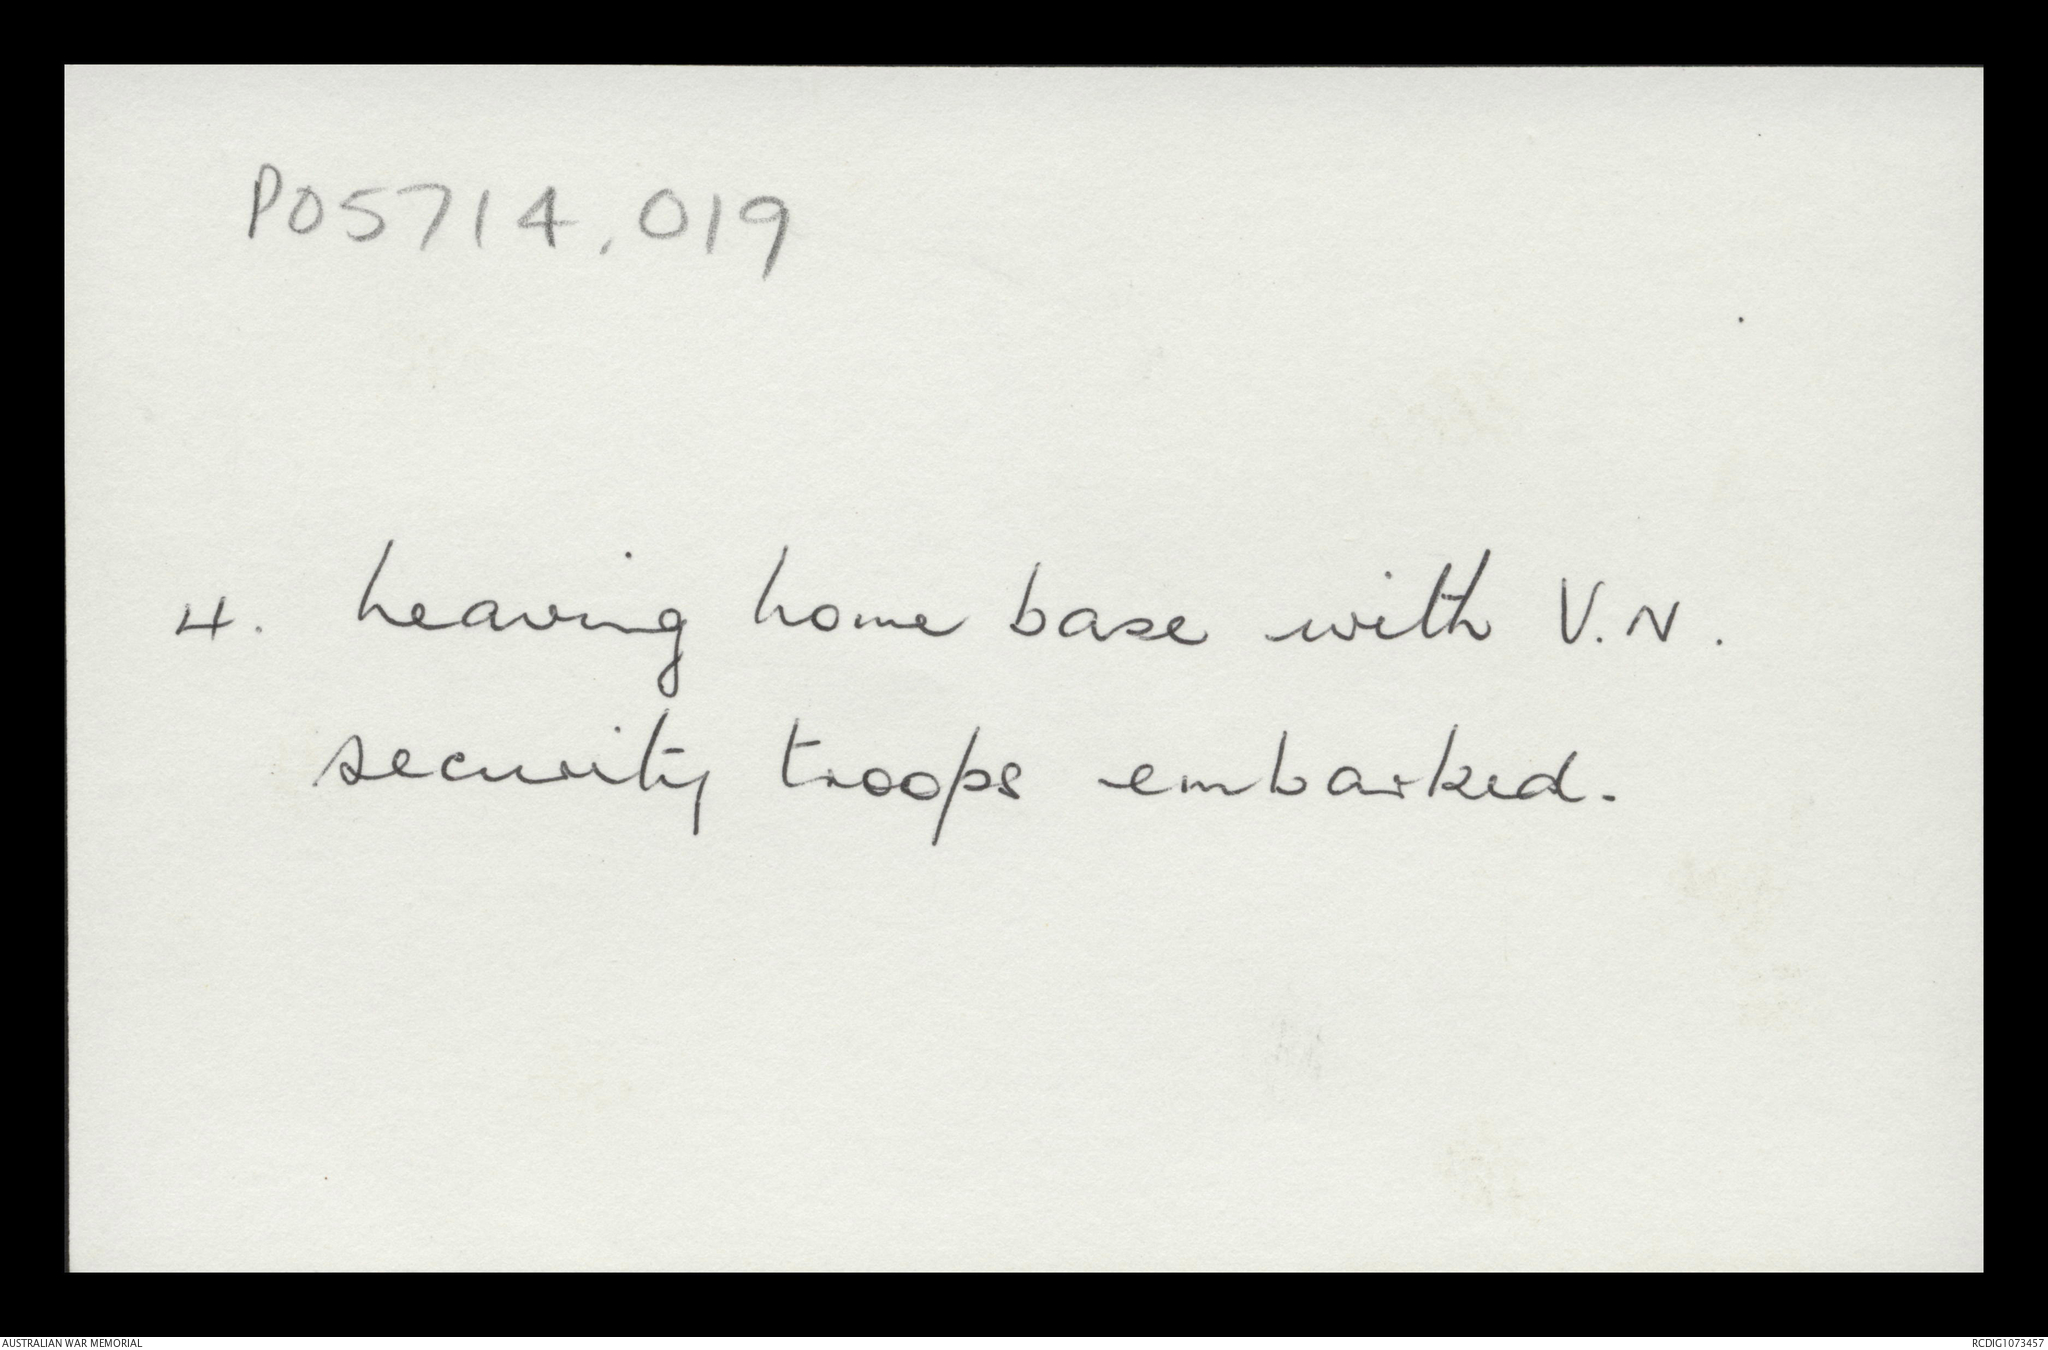 P05714.019
4. Leaving home base with V.N.
security troops embarked.
AUSTRALIAN WAR MEMORIAL
RCDIG1073457